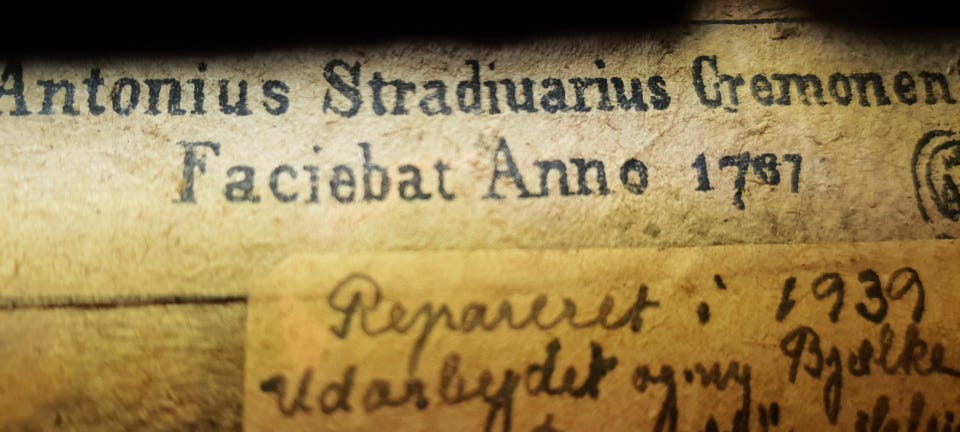 Antonius Stradiuarius Cremonen
Faciebat Anno
Repareret i 1939
Udarbejdet og ny Bjælke